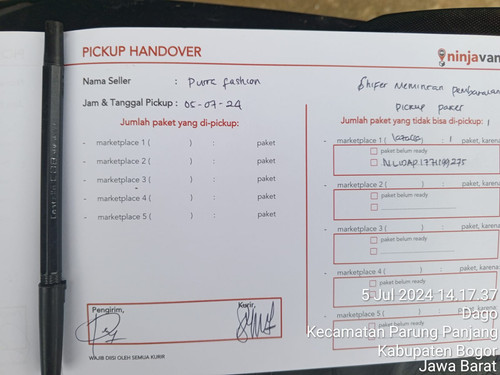 PICKUP HANDOVER
ninjavan
Nama Seller : Purre fashion
Jam & Tanggal Pickup : 05-07-24
Jumlah paket yang di-pickup:
- marketplace 1 ( ) : paket
- marketplace 2 ( ) : paket
- marketplace 3 ( ) : paket
- marketplace 4 ( ) : paket
- marketplace 5 ( ) : paket
Pengirim,
Kurir,
WAJIB DIISI OLEH SEMUA KURIR
Shifer meminta
pickup paket
Jumlah paket yang tidak bisa di-pickup: 1
- marketplace 1 ( lazada ) 1 paket, karena
paket belum ready
- marketplace 2 ( ) : paket, karena
paket belum ready
- marketplace 3 ( ) : paket, karena
paket belum ready
- marketplace 4 ( ) paket, karena
paket belum ready
- marketplace 5 ( paket, karena
paket belum ready
5 Jul 2024 14.17.37
Dago
Kecamatan Parung Panjang
Kabupaten Bogor
Jawa Barat